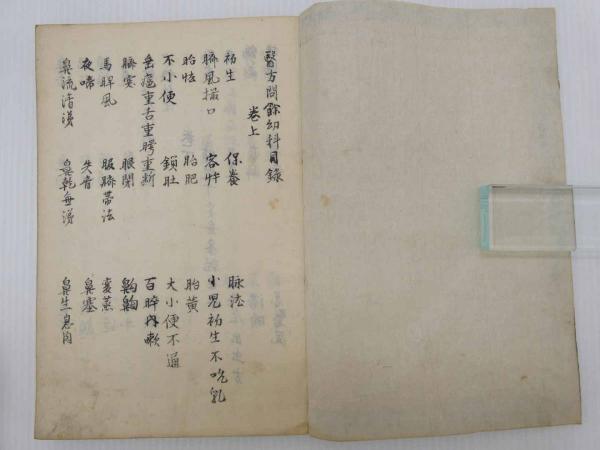 醫方問餘幼科目錄
卷上
初生 保養 脉法
臍風撮口 客忤 小児初生不吃乳
胎怯 胎肥 胎黄
不小便 鎖肚 大小便不通
重舌重腭重断 百晬内嗽
臍突 眼閉
馬脾風 服臍帯法 変蒸
夜啼 失音 鼻塞
鼻流清涕 鼻乾無涕 鼻生息肉